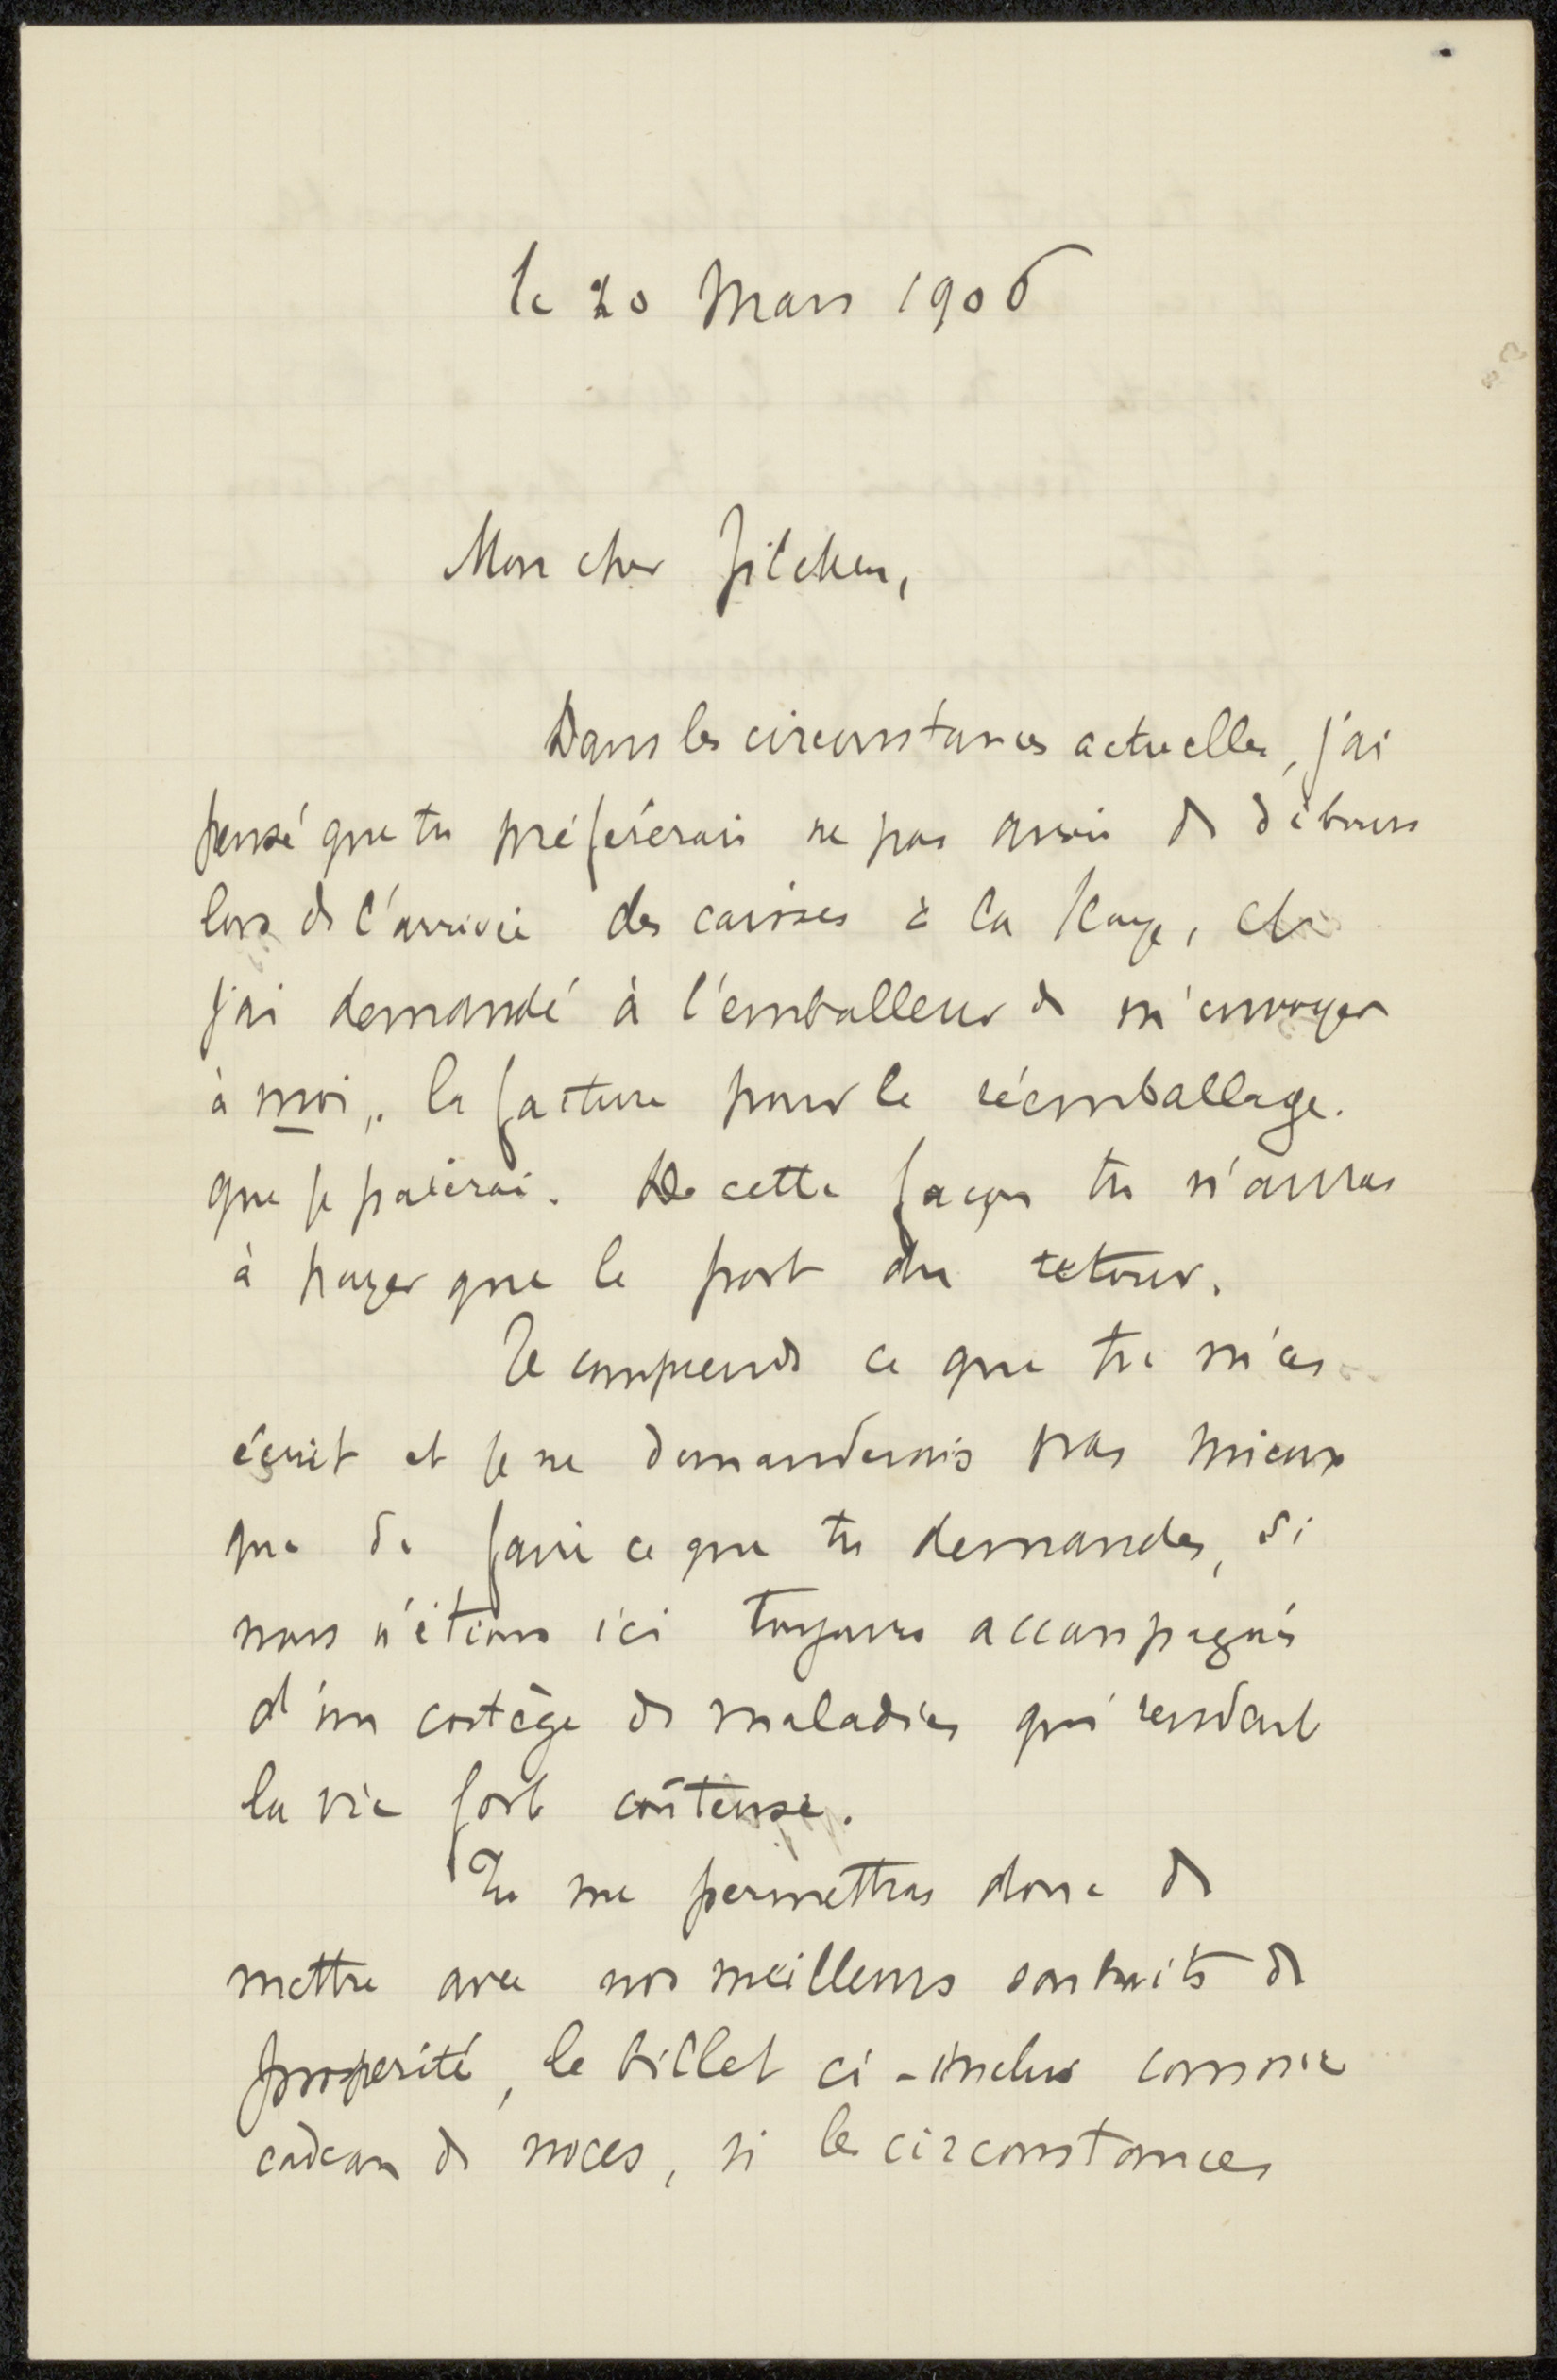 le 20 Mars 1906
Mon cher Zilcken,
Dans les circonstances actuelles, j'ai
pensé que tu préférerais ne pas avoir de débours
lors de l'arrivée des caisses à la Haye, et
j'ai demandé à l'emballeur de m'envoyer
à moi, la facture pour le réemballage.
que je paierai. De cette façon tu n'auras
à payer que le port du retour.
Je comprends ce que tu m'as
écrit et je ne demanderais pas mieux
que de faire ce que tu demandes, si
nous n'étions ici toujours accompagnés
d'un cortège de maladies qui rendent
la vie fort coûteuse.
Tu me permettras donc de
mettre avec nos meilleurs souhaits de
prosperité, le billet ci-inclus comme
cadeau de noces, si les circonstances